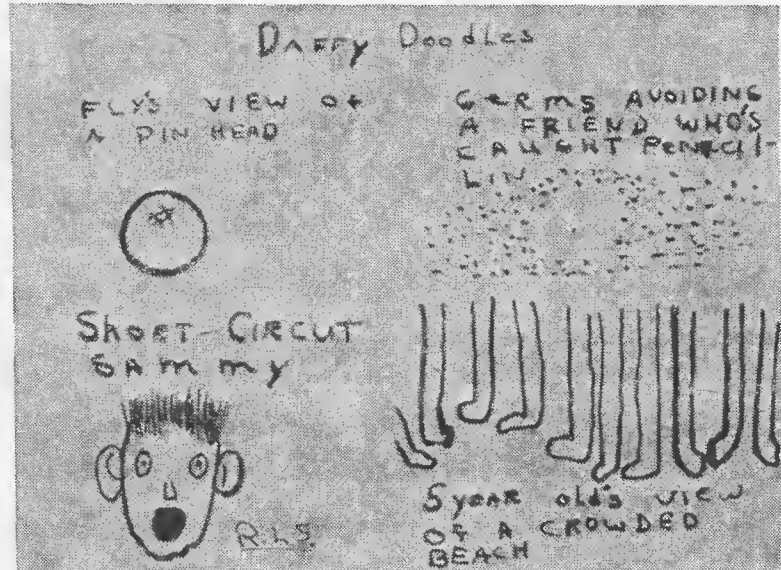 Daffy Doodles
FLY'S VIEW OF
A PIN HEAD
GERMS AVOIDING
A FRIEND WHO'S
CAUGHT PENECIL-
LIN
SHORT-CIRCUT
SAMMY
R.L.S.
5 year old's view
OF A CROWDED
BEACH